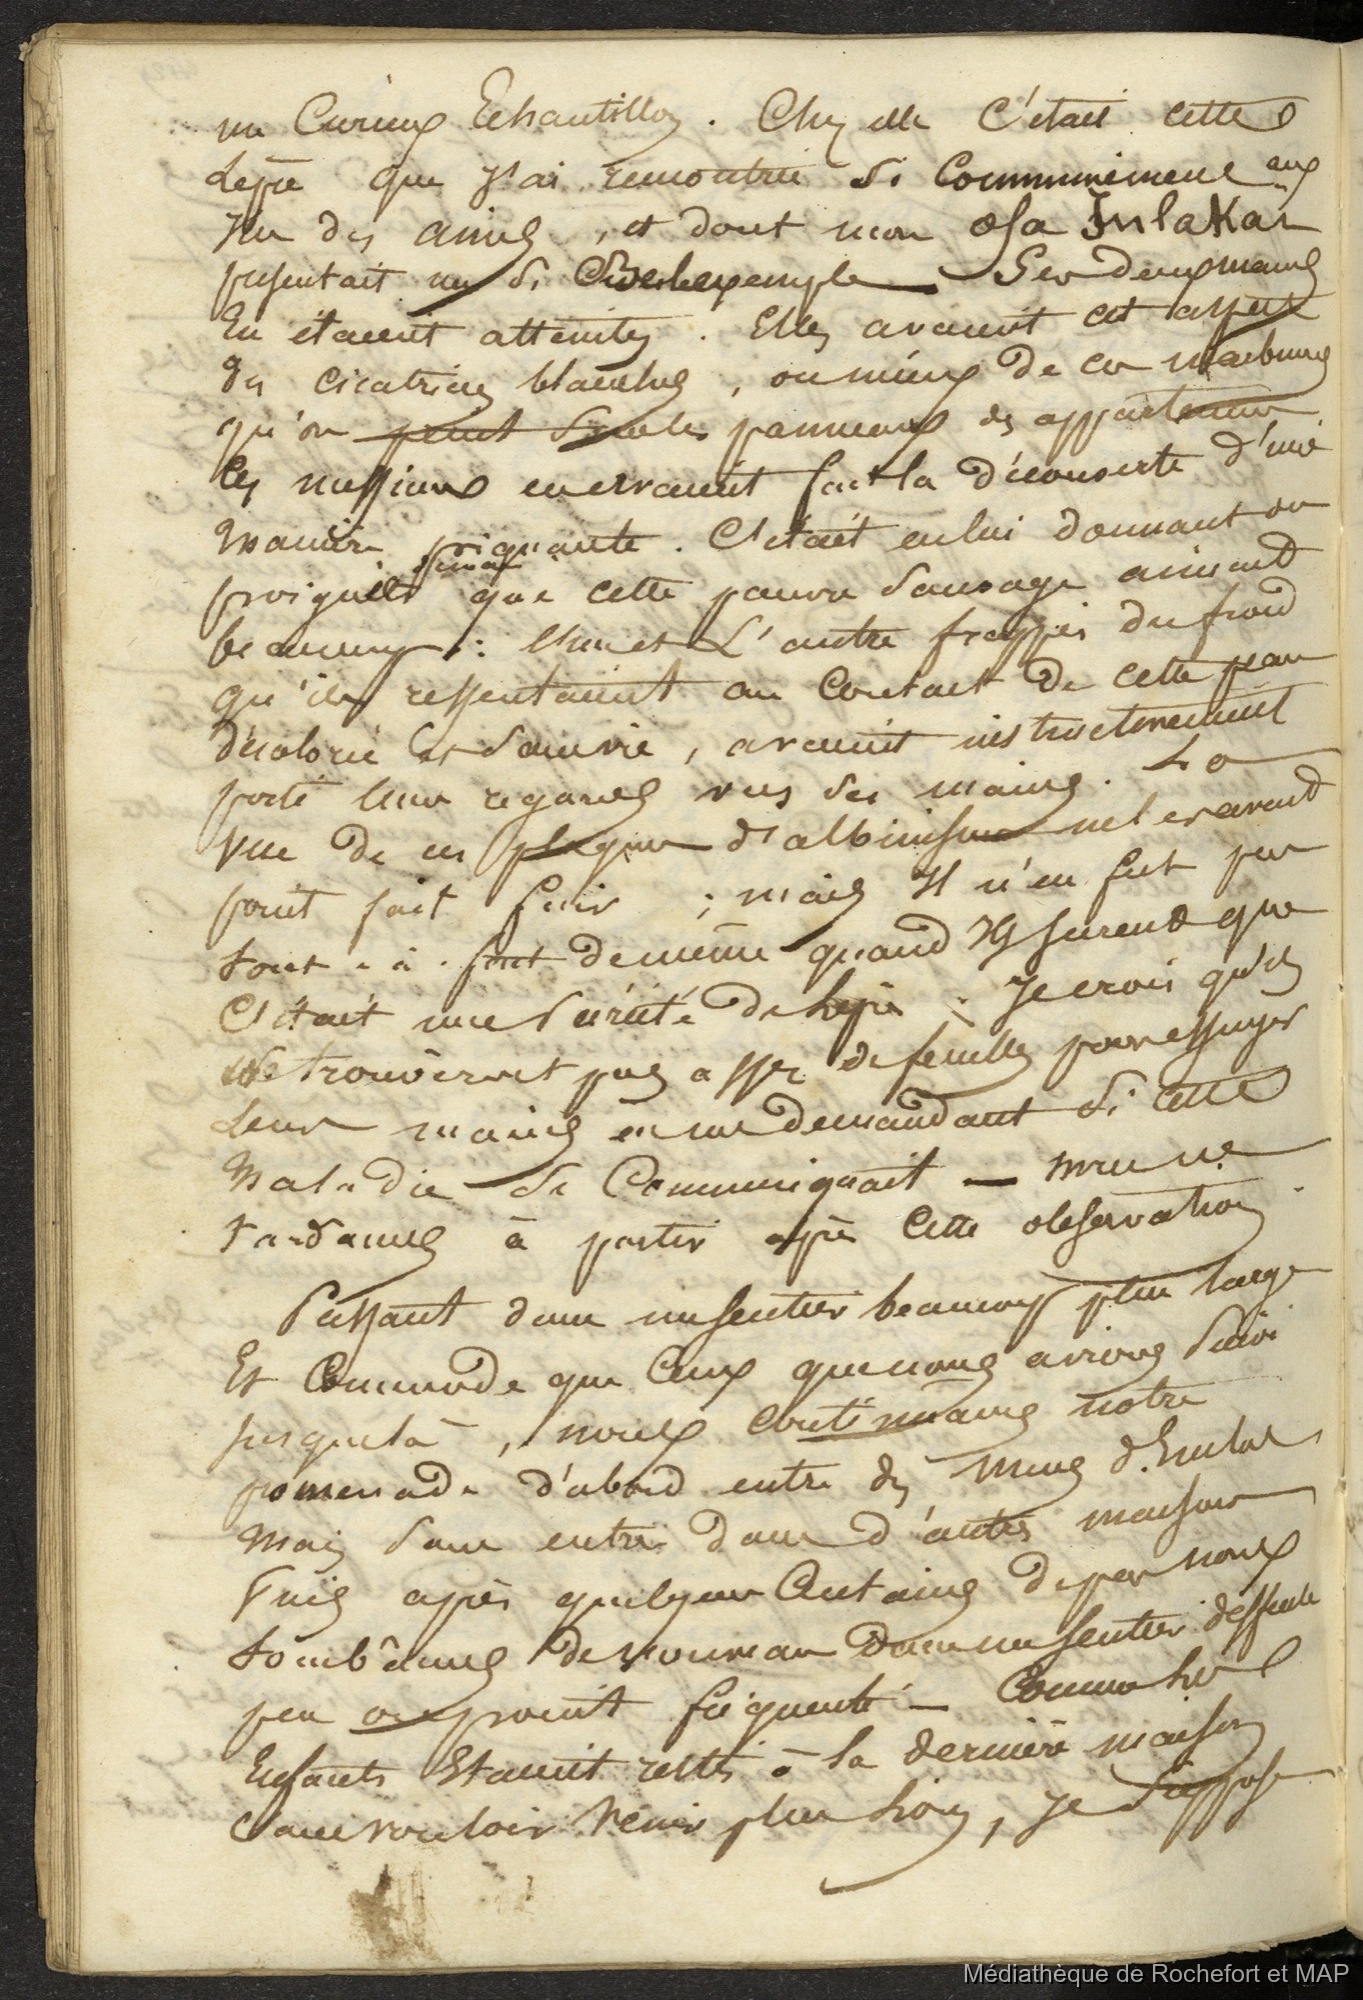 un Curieux Echantillon. Chez elle C'etait cette
Lèpre que J'ai rencontrée si Communément aux
Iles des amis, et dont mon ofa
presentait un si bel exemple — Ses deux mains
En étaient atteintes. Elles avaient cet aspect
des cicatrices blanches, ou mieux de ces marbrures
qu'on peint sur les panneaux des appartemens
Ces messieurs en avaient fait la découverte d'une
Maniere piquante. C'était en lui donnant une
poignée de main que cette pauvre Sauvage aimait
beaucoup : L'un et L'autre frappés du froid
qu'ils ressentaient au Contact de cette peau
décolorée et sans vie, avaient instinctivement
porté leurs regards vers ses mains. La
Vue de ces plaques d'albinisme ne les avait
point fait fuir ; mais Il n'en fut pas
tout-à-fait de même quand Ils surent que
C'était une Variété de Lèpre : Je crois qu'ils
ne trouvèrent pas assez de feuilles pour essuyer
Leurs mains en me demandant si cette
Maladie se Communiquait — nous ne
tardames à partir après Cette observation
Passant dans un sentier beaucoup plus large
Et Commode que Ceux que nous avions Suivi
jusque là, nous Continuames notre
promenade d'abord entre des Murs d'Enclos
Mais sans entrer dans d'autres maisons
Puis après quelques Centaines de pas nous
tombâmes de nouveau dans un sentier
peu ou point fréquenté — Comme les
Enfants Etaient restés à la dernière maison
sans vouloir Venir plus Loin, Je Suppose
Médiathèque de Rochefort et MAP